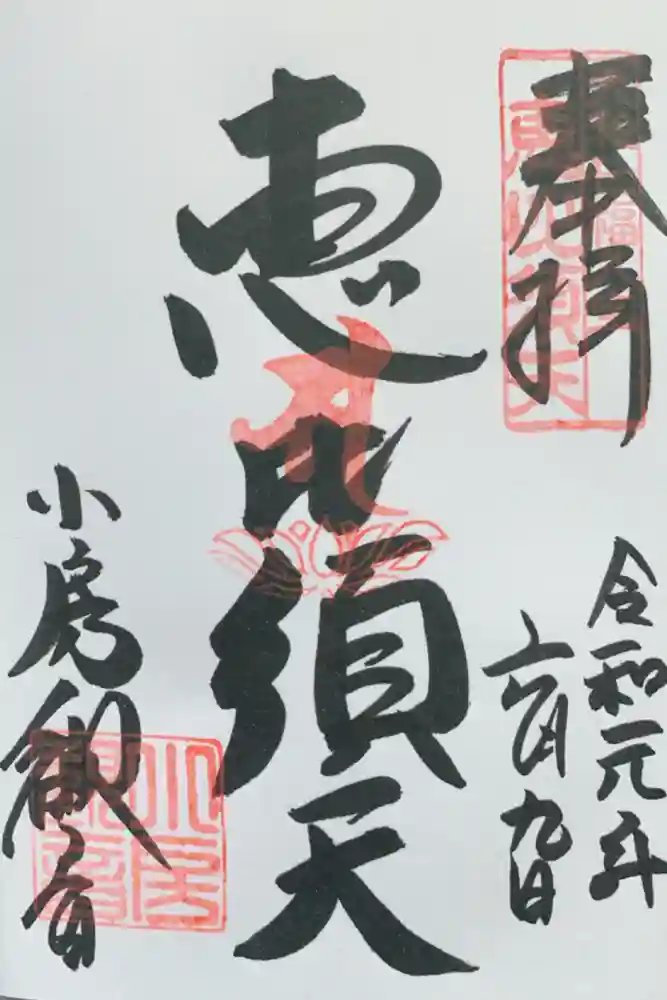 奉拝
令和元年
六月九日
恵比須天
小房観音
小房
観音